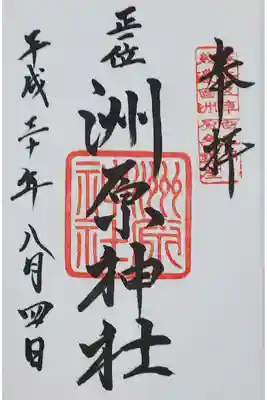 奉拝
正一位
洲原神社
洲原神社
平成三十年八月四日